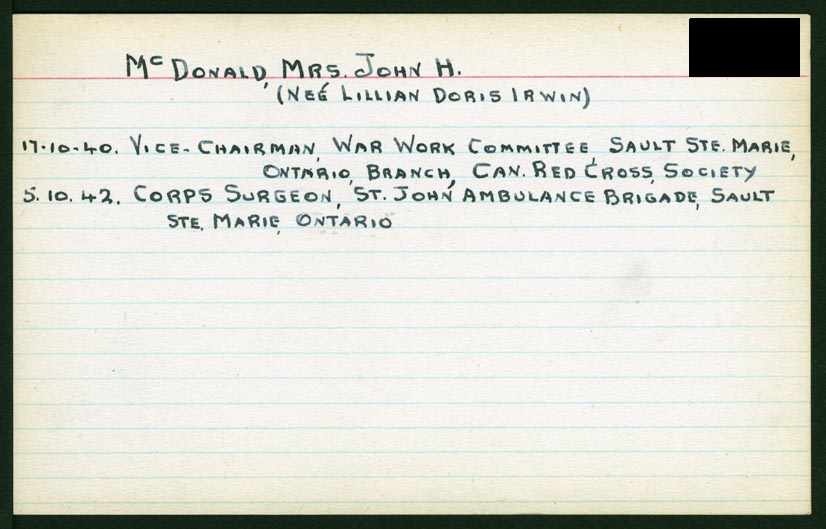 Mc DONALD, MRS. JOHN H.
(NEÉ LILLIAN DORIS IRWIN)
17-10-40. VICE-CHAIRMAN, WAR WORK COMMITTEE SAULT STE. MARIE,
ONTARIO, BRANCH, CAN. RED CROSS, SOCIETY
5.10.42. CORPS SURGEON, ST. JOHN AMBULANCE BRIGADE, SAULT
STE. MARIE, ONTARIO